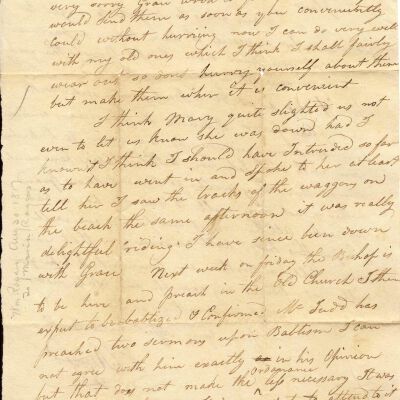 very sorry Gran
would send them as soon as you conveniently
could without hurriing now I can do very well
with my old ones which I think I shall fairly
wear out so dont hurry yourself about them
but make them when it is convenient
I think Mary quite slighted us not
even to let us know she was down had I
known I think I should have Intruded so far
as to have went in and spoke to her at least
tell her I saw the tracks of the waggons on
the beach the same afternoon it was really
delightful riding I have since been down
with Grace Next week on friday the Bishop is
to be hire and preach in the Old Church I then
expect to be babtized & Confirmed Mr Judd has
preached two sermons upon Babtism I can
not agree with him exactly in his Opinion
but that does not make the Ordinance less necessary It was
to attend to it